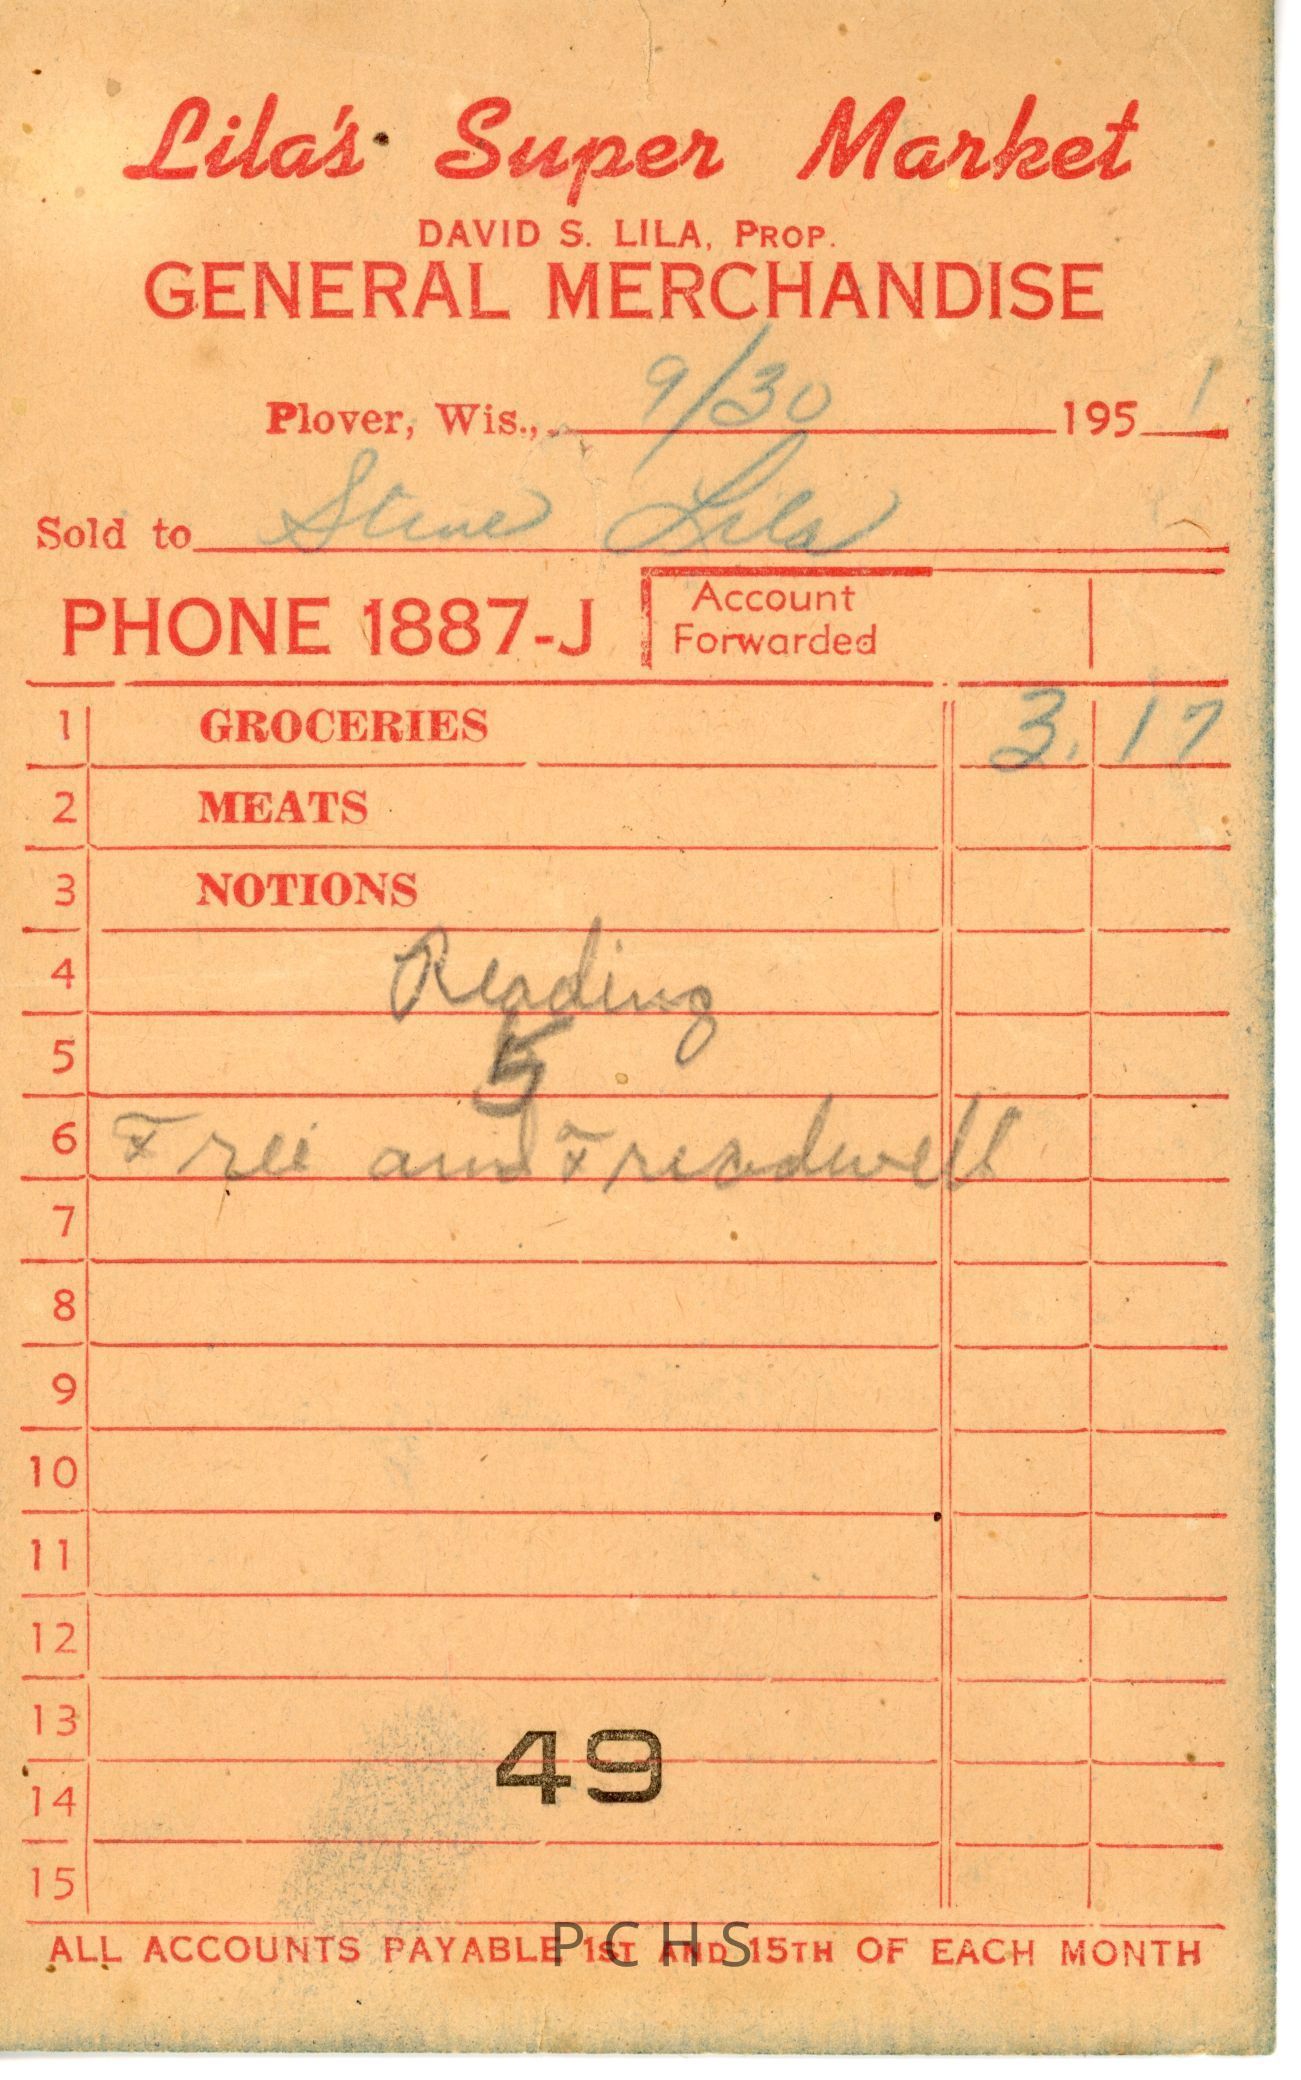 Lila's Super Market
DAVID S. LILA, PROP.
GENERAL MERCHANDISE
Plover, Wis., 9/30 1951
Sold to Steve Lila
PHONE 1887-J
Account
Forwarded
1 GROCERIES 3.17
2 MEATS
3 NOTIONS
4 Reading
5 5
6 Free and Treadwell
7
8
9
10
11
12
13
49
14
15
ALL ACCOUNTS PAYABLE 1ST AND 15TH OF EACH MONTH
PCHS